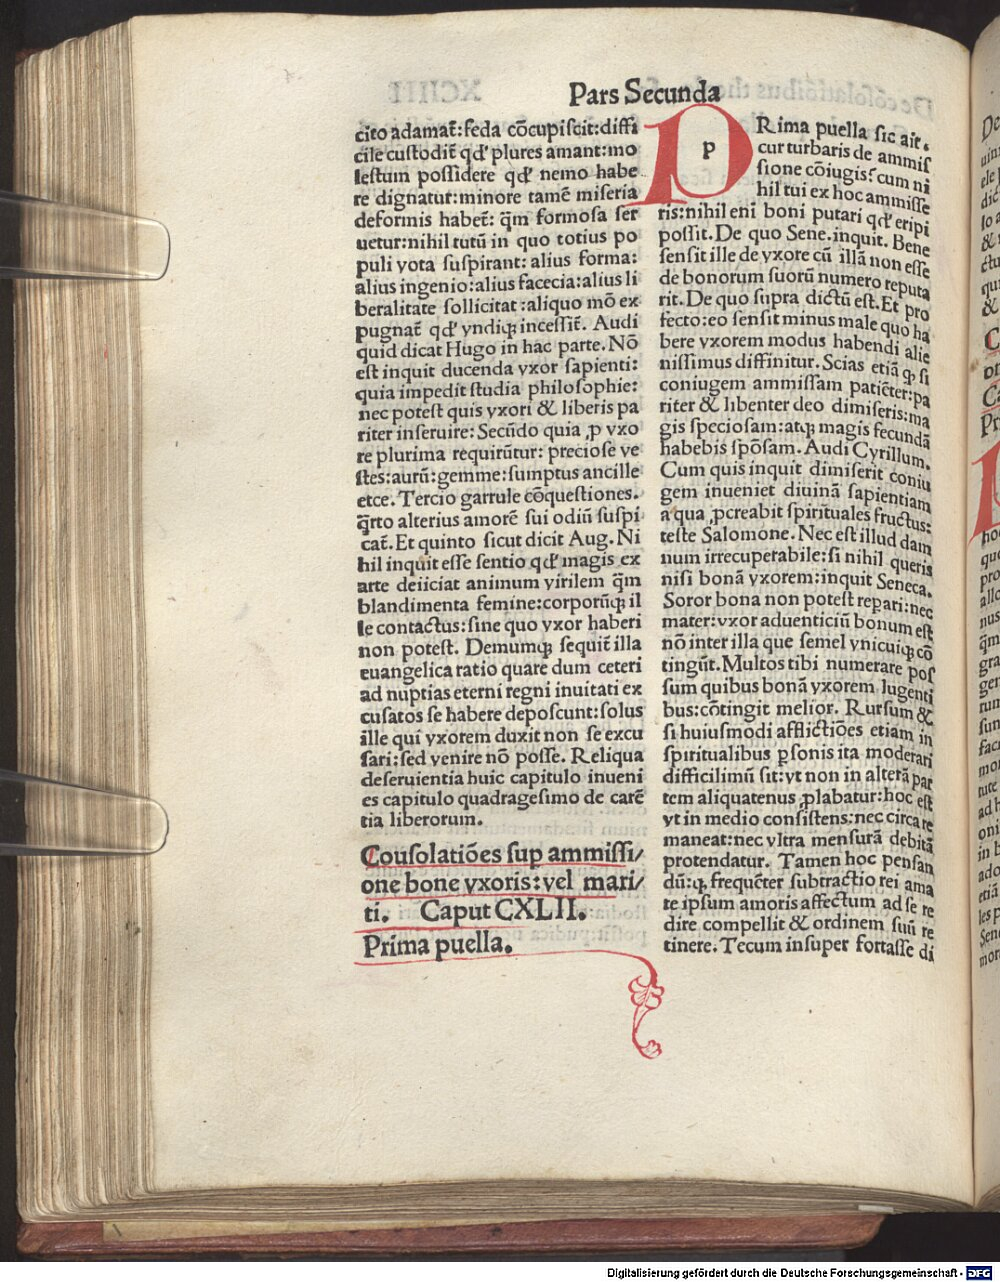 Pars Secunda
cito adamat̄: feda cōcupiſcit: diffi
cile cuſtodit̄ qđ plures amant: mo
leſtum poſſidere qđ nemo habe
re dignatur: minore tamē miſeria
deformis habet̄: q̄m formoſa ſer
uetur: nihil tutū in quo totius po
puli vota ſuſpirant: alius forma:
alius ingenio: alius facecia: alius li
beralitate ſollicitat: aliquo mō ex
pugnat̄ qđ vndiqꝫ inceſſit̄. Audi
quid dicat Hugo in hac parte. Nō
eſt inquit ducenda vxor ſapienti:
quia impedit ſtudia philoſophie:
nec poteſt quis vxori & liberis pa
riter inſeruire: Secūdo quia ꝓ vxo
re plurima requirūtur: precioſe ve
ſtes: aurū: gemme: ſumptus ancille
etce. Tercio garrule cōqueſtiones.
q̄rto alterius amorē ſui odiū ſuſpi
cat̄. Et quinto ſicut dicit Aug. Ni
hil inquit eſſe ſentio qđ magis ex
arte deiiciat animum virilem q̄m
blandimenta femine: corporūqꝫ il
le contactus: ſine quo vxor haberi
non poteſt. Demumqꝫ ſequit̄ illa
euangelica ratio quare dum ceteri
ad nuptias eterni regni inuitati ex
cuſatos ſe habere depoſcunt: ſolus
ille qui vxorem duxit non ſe excu
ſari: ſed venire nō poſſe. Reliqua
deſeruientia huic capitulo inueni
es capitulo quadrageſimo de carē
tia liberorum.
Conſolatiōes ſuꝑ ammiſſi/
one bone vxoris: vel mari/
ti. Caput CXLII.
Prima puella.
p
PRima puella ſic ait.
cur turbaris de ammiſ
ſione cōiugis? cum ni
hil tui ex hoc ammiſſe
ris: nihil eni boni putari qđ eripi
poſſit. De quo Sene. inquit. Bene
ſenſit ille de vxore cū illā non eſſe
de bonorum ſuorū numero reputa
rit. De quo ſupra dictū eſt. Et pro
fecto: eo ſenſit minus male quo ha
bere vxorem modus habendi alie
niſſimus diffinitur. Scias etiā ꝙ ſi
coniugem ammiſſam patiēter: pa
riter & libenter deo dimiſeris: ma
gis ſpecioſam: atqꝫ magis fecundā
habebis ſpōſam. Audi Cyrillum.
Cum quis inquit dimiſerit coniu
gem inueniet diuinā ſapientiam
a qua ꝓcreabit ſpirituales fructus:
teſte Salomone. Nec eſt illud dam
num irrecuperabile: ſi nihil queris
niſi bonā vxorem: inquit Seneca.
Soror bona non poteſt repari: nec
mater: vxor aduenticiū bonum eſt
nō inter illa que ſemel vnicuiqꝫ cō
tingūt. Multos tibi numerare poſ
ſum quibus bonā vxorem lugenti
bus: cōtingit melior. Rurſum &
ſi huiuſmodi afflictiōes etiam in
ſpiritualibus ꝑſonis ita moderari
difficilimū ſit: vt non in alterā par
tem aliquatenus ꝓlabatur: hoc eſt
vt in medio conſiſtens: nec circa re
maneat: nec vltra menſurā debitā
protendatur. Tamen hoc penſan
dū: ꝙ frequēter ſubtractio rei ama
te ipſum amoris affectum ad ſe re
dire compellit & ordinem ſuū re
tinere. Tecum inſuper fortaſſe di
Digitalisierung gefördert durch die Deutsche Forschungsgemeinschaft - DFG